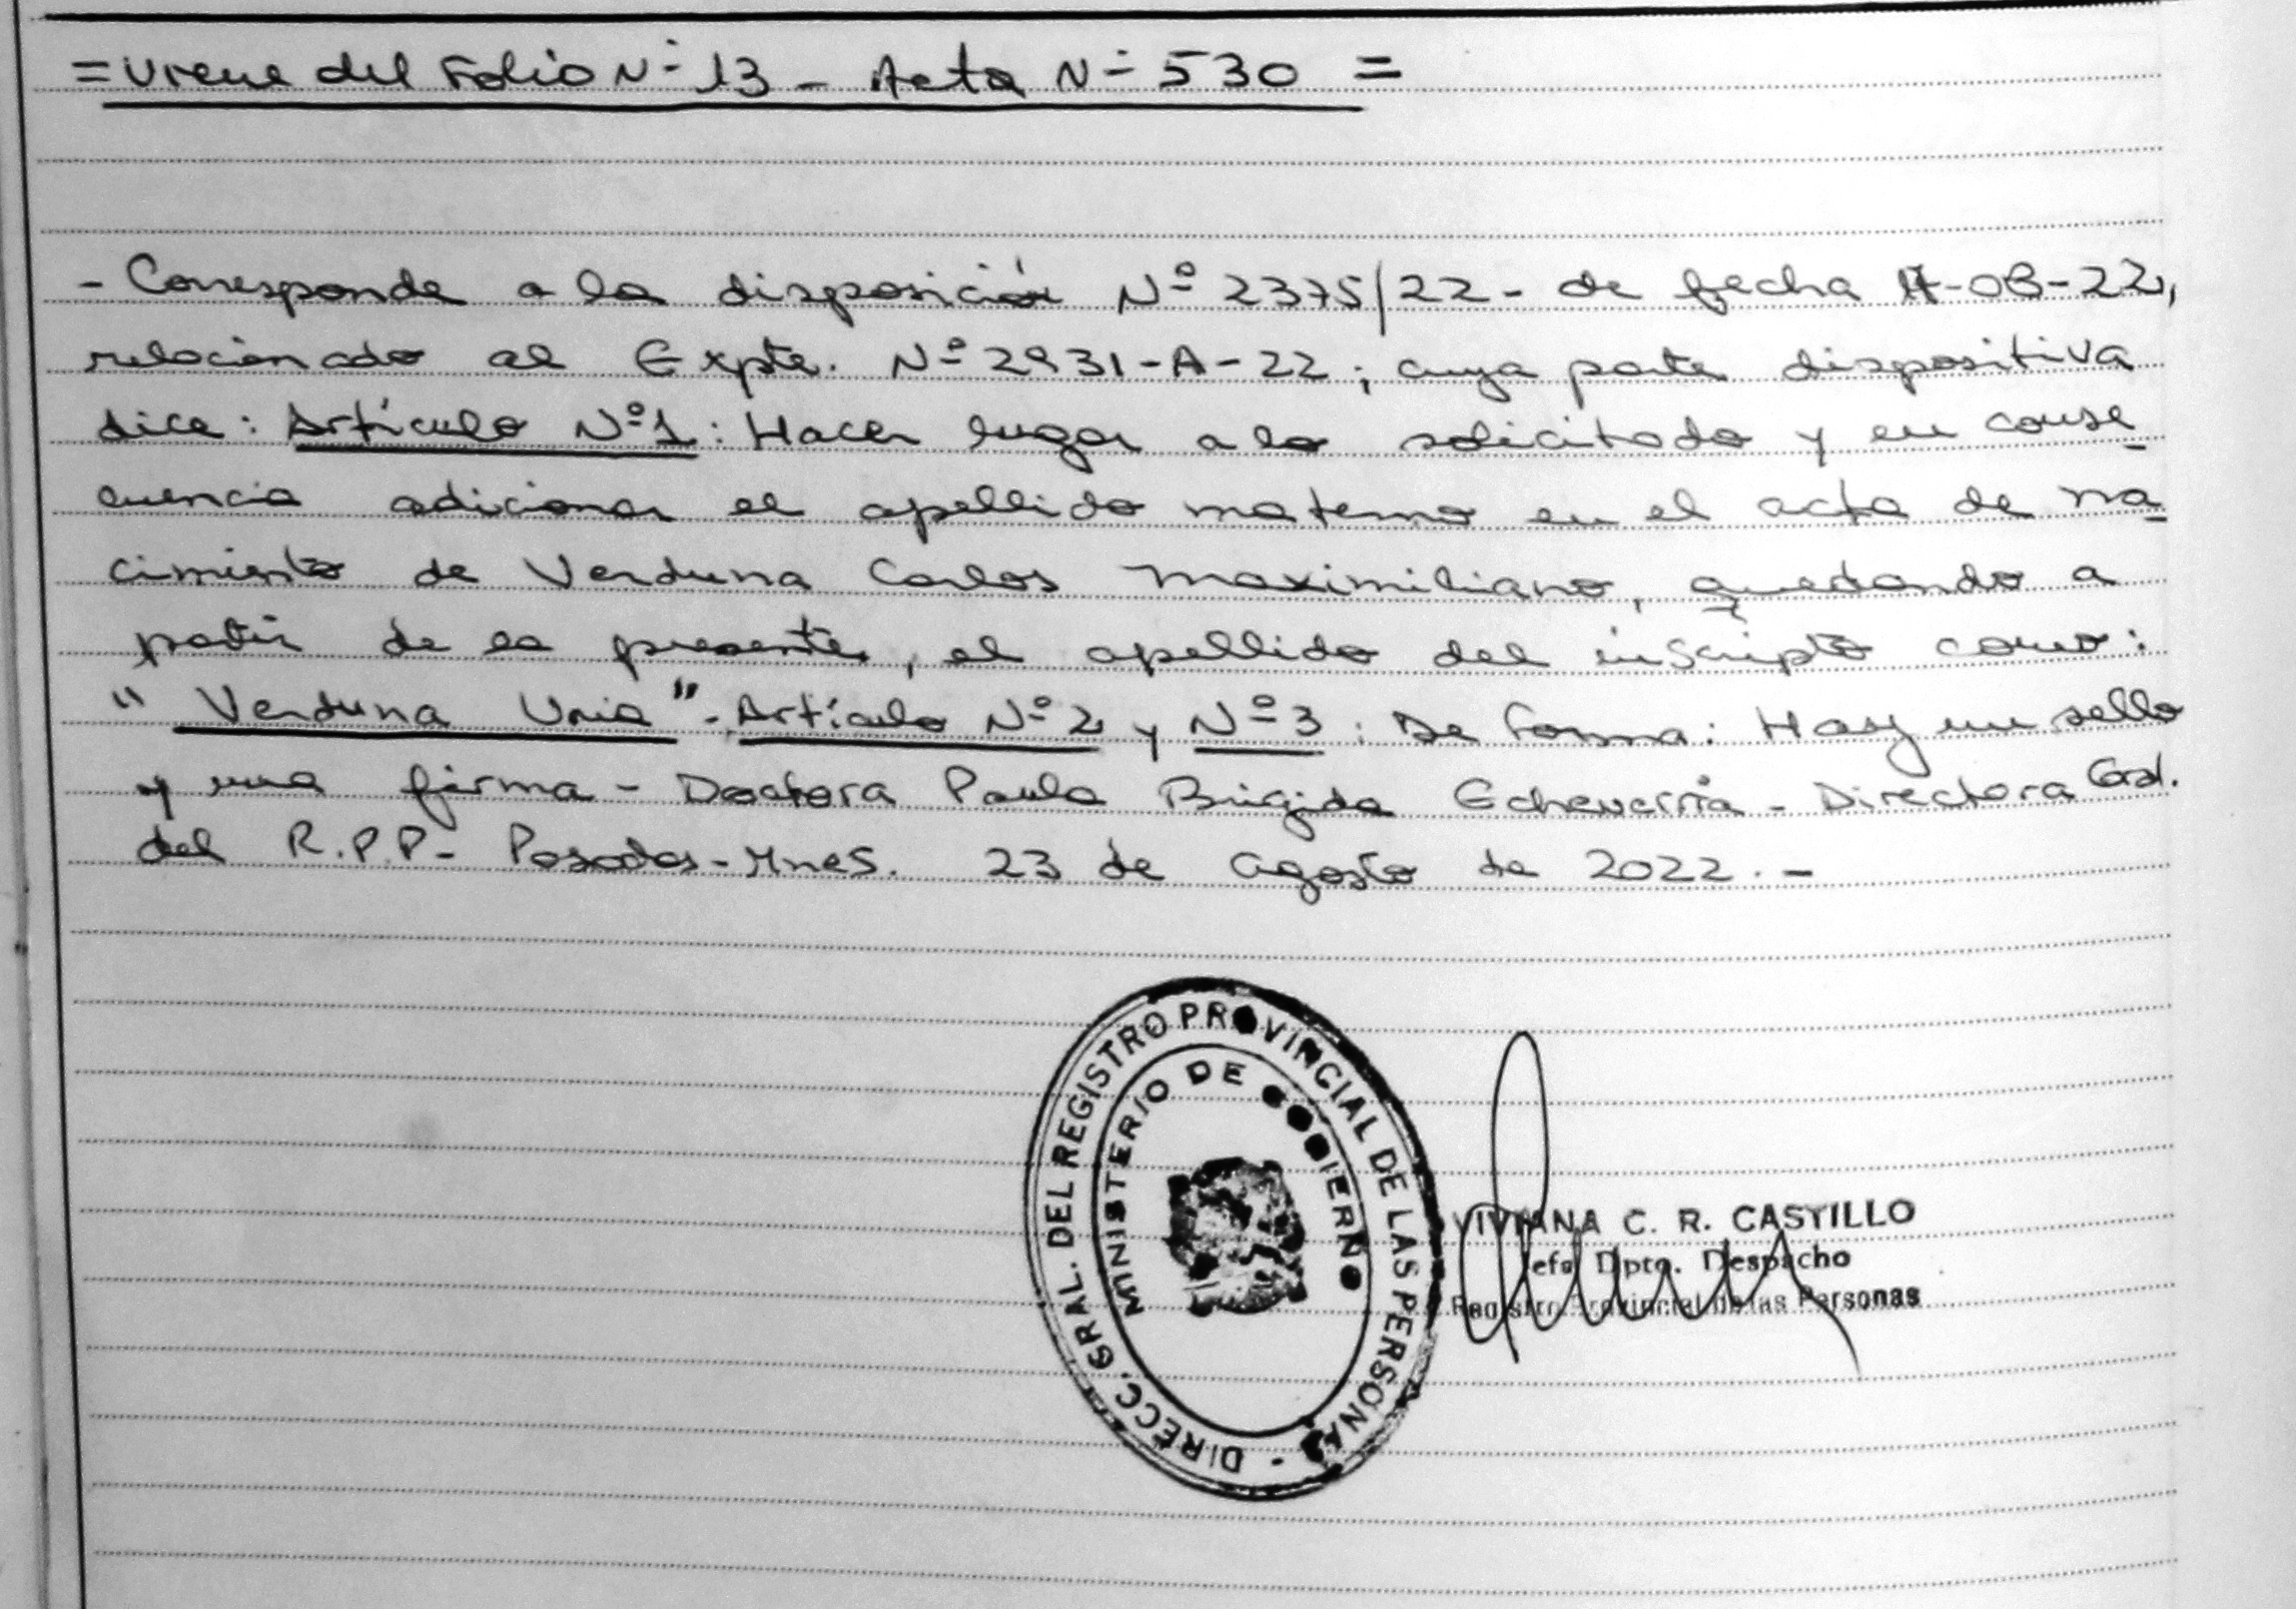 = Viene del Folio Nº 13 - Acta Nº 530 =
- Corresponde a la disposición Nº 2375/22 - de fecha 17-08-22,
relacionado al Expte. Nº 2931-A-22; cuya parte dispositiva
dice: Artículo Nº 1: Hacer lugar a lo solicitado y en conse
cuencia adicionar el apellido materno en el acta de na
cimiento de Verduna Carlos Maximiliano, quedando a
partir de la presente, el apellido del inscripto como:
" Verduna Uria". Artículo Nº 2 y Nº 3: De forma: Hay un sello
y una firma - Doctora Paula Brigida Echevarria - Directora Gral.
del R.P.P - Posadas - Mnes. 23 de Agosto de 2022. -
DIRECC. GRAL. DEL REGISTRO PROVINCIAL DE LAS PERSONAS -
MINISTERIO DE GOBIERNO
VIVIANA C. R. CASTILLO
Jefa Dpto. Despacho
Registro Provincial de las Personas